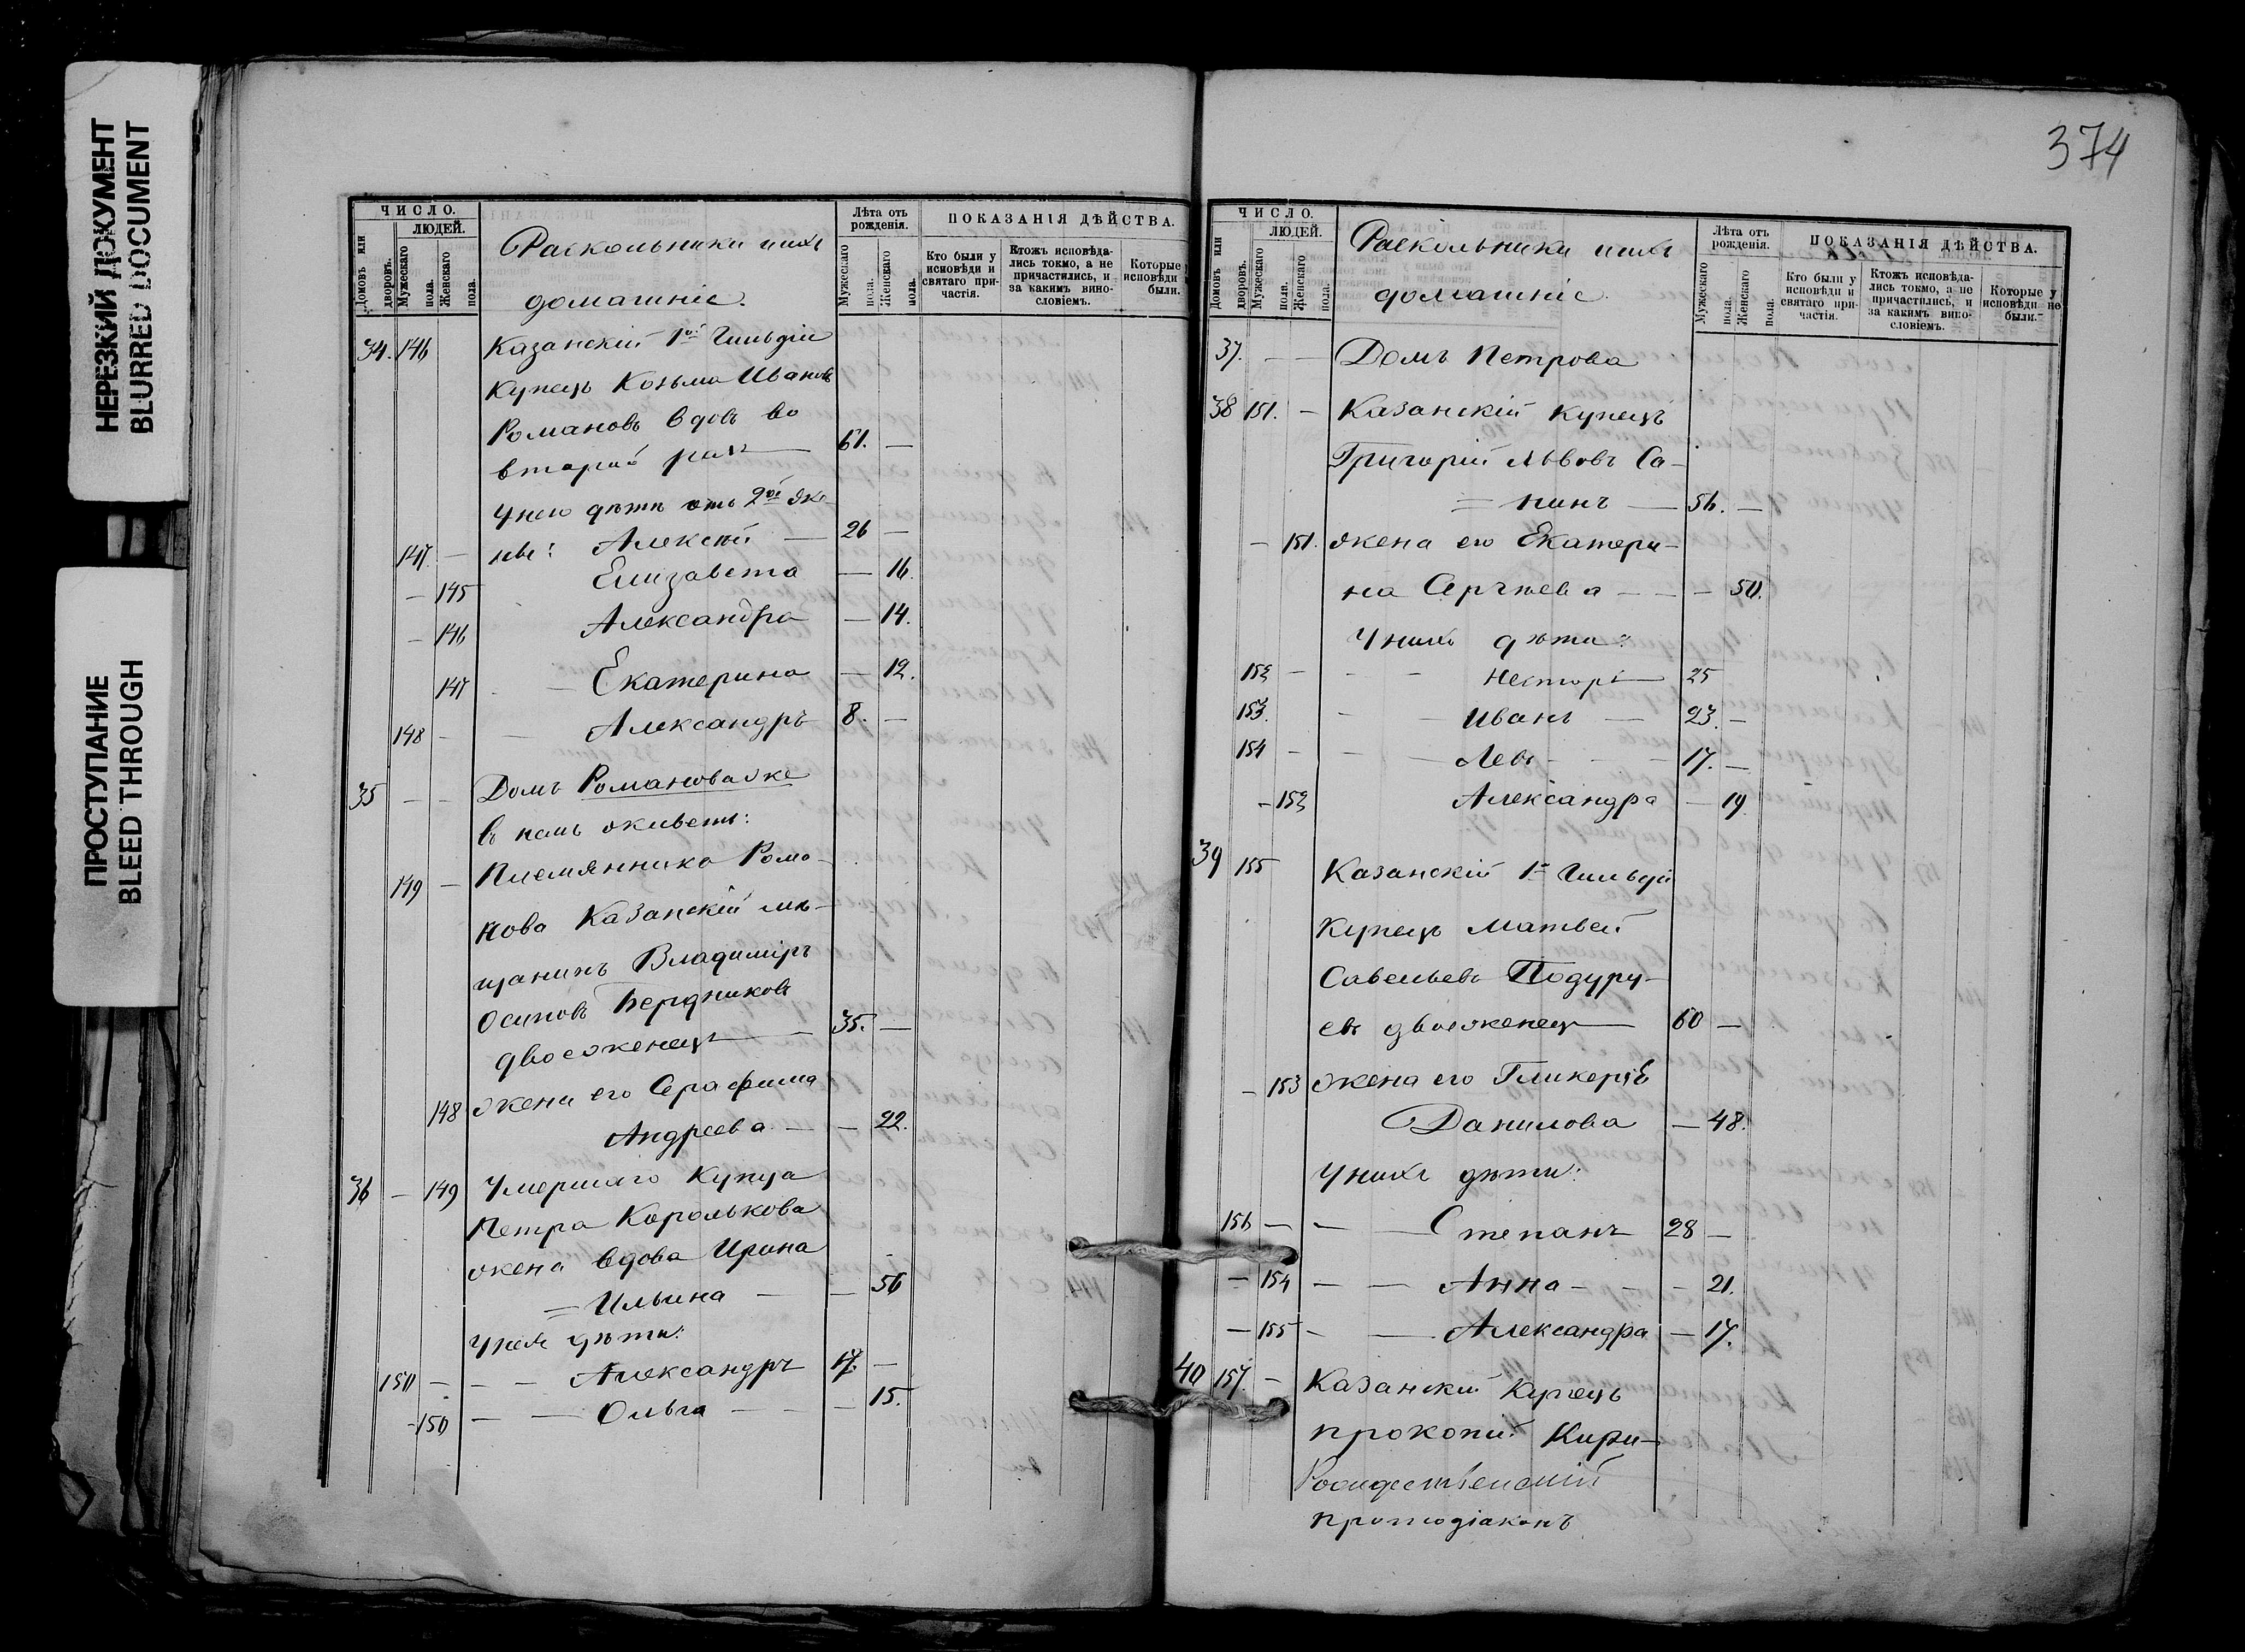 НЕРЕЗКИЙ ДОКУМЕНТ
BLURRED DOCUMENT
ПРОСТУПАНИЕ
BLEED THROUGH
ЧИСЛО.
ЛЮДЕЙ.
Домовъ или дворовъ.
Мужескаго пола.
Женскаго пола.
Раскольники и ихъ
домашніе.
Лѣта отъ рожденія.
Мужескаго пола.
Женскаго пола.
ПОКАЗАНІЯ ДѢЙСТВА.
Кто были у исповѣди и святаго причастія.
Ктожъ исповѣдались токмо, а не причастились, и за какимъ винословіемъ.
Которые у исповѣди не были.
34. 146 Казанскій 1ой Гильдіи
Купецъ Козьма Ивановъ
Романовъ вдовъ во
второй разъ — 61. —
У него дѣти отъ 2ой же-
147 — ны: Алексѣй — 26 —
— 145 Елизавета — 16.
— 146 Александра — 14.
147 — Екатерина — 12.
148 — — Александръ 8. —
35 — — Домъ Романова же
въ немъ живетъ:
149 — Племянникъ Рома-
нова Казанскій мѣ-
щанинъ Владиміръ
Осиповъ Бердниковъ
двоеженецъ — 35. —
148 жена его Серафима
Андреева — — 22.
36 — 149 Умершаго Купца
Петра Королькова
жена вдова Ирина
= Ильина — — 56
У нея дѣти:
150 — — — Александръ 17. —
— 150 — — Ольга — — 15.
374
ЧИСЛО.
ЛЮДЕЙ.
Домовъ или дворовъ.
Мужескаго пола.
Женскаго пола.
Раскольники и ихъ
домашніе
Лѣта отъ рожденія.
Мужескаго пола.
Женскаго пола.
ПОКАЗАНІЯ ДѢЙСТВА.
Кто были у исповѣди и святаго причастія.
Ктожъ исповѣдались токмо, а не причастились, и за какимъ винословіемъ.
Которые у исповѣди не были.
37. — — Домъ Петрова
38 151. — Казанскій Купецъ
Григорій Львовъ Са-
= нинъ — 56. —
— 151. жена его Екатери-
на Сергѣева — — — 50.
У нихъ дѣти:
152 — — — Несторъ — 25
153. — — Иванъ — 23. —
154 — — — Левъ — — — 17. —
— 152 Александра — 19
39 155 Казанскій 1й Гильдіи
Купецъ Матвей
Савельевъ Подуру-
евъ двоеженецъ — 60 —
— 153 жена его Гликерія
Данилова — 48.
У нихъ дѣти:
156 — — — Степанъ 28 —
— 154 — — Анна — — — 21.
— 155 — — Александра — 17.
40 157. — Казанскій Купецъ
Прокопій Кири-
протодіаконъ